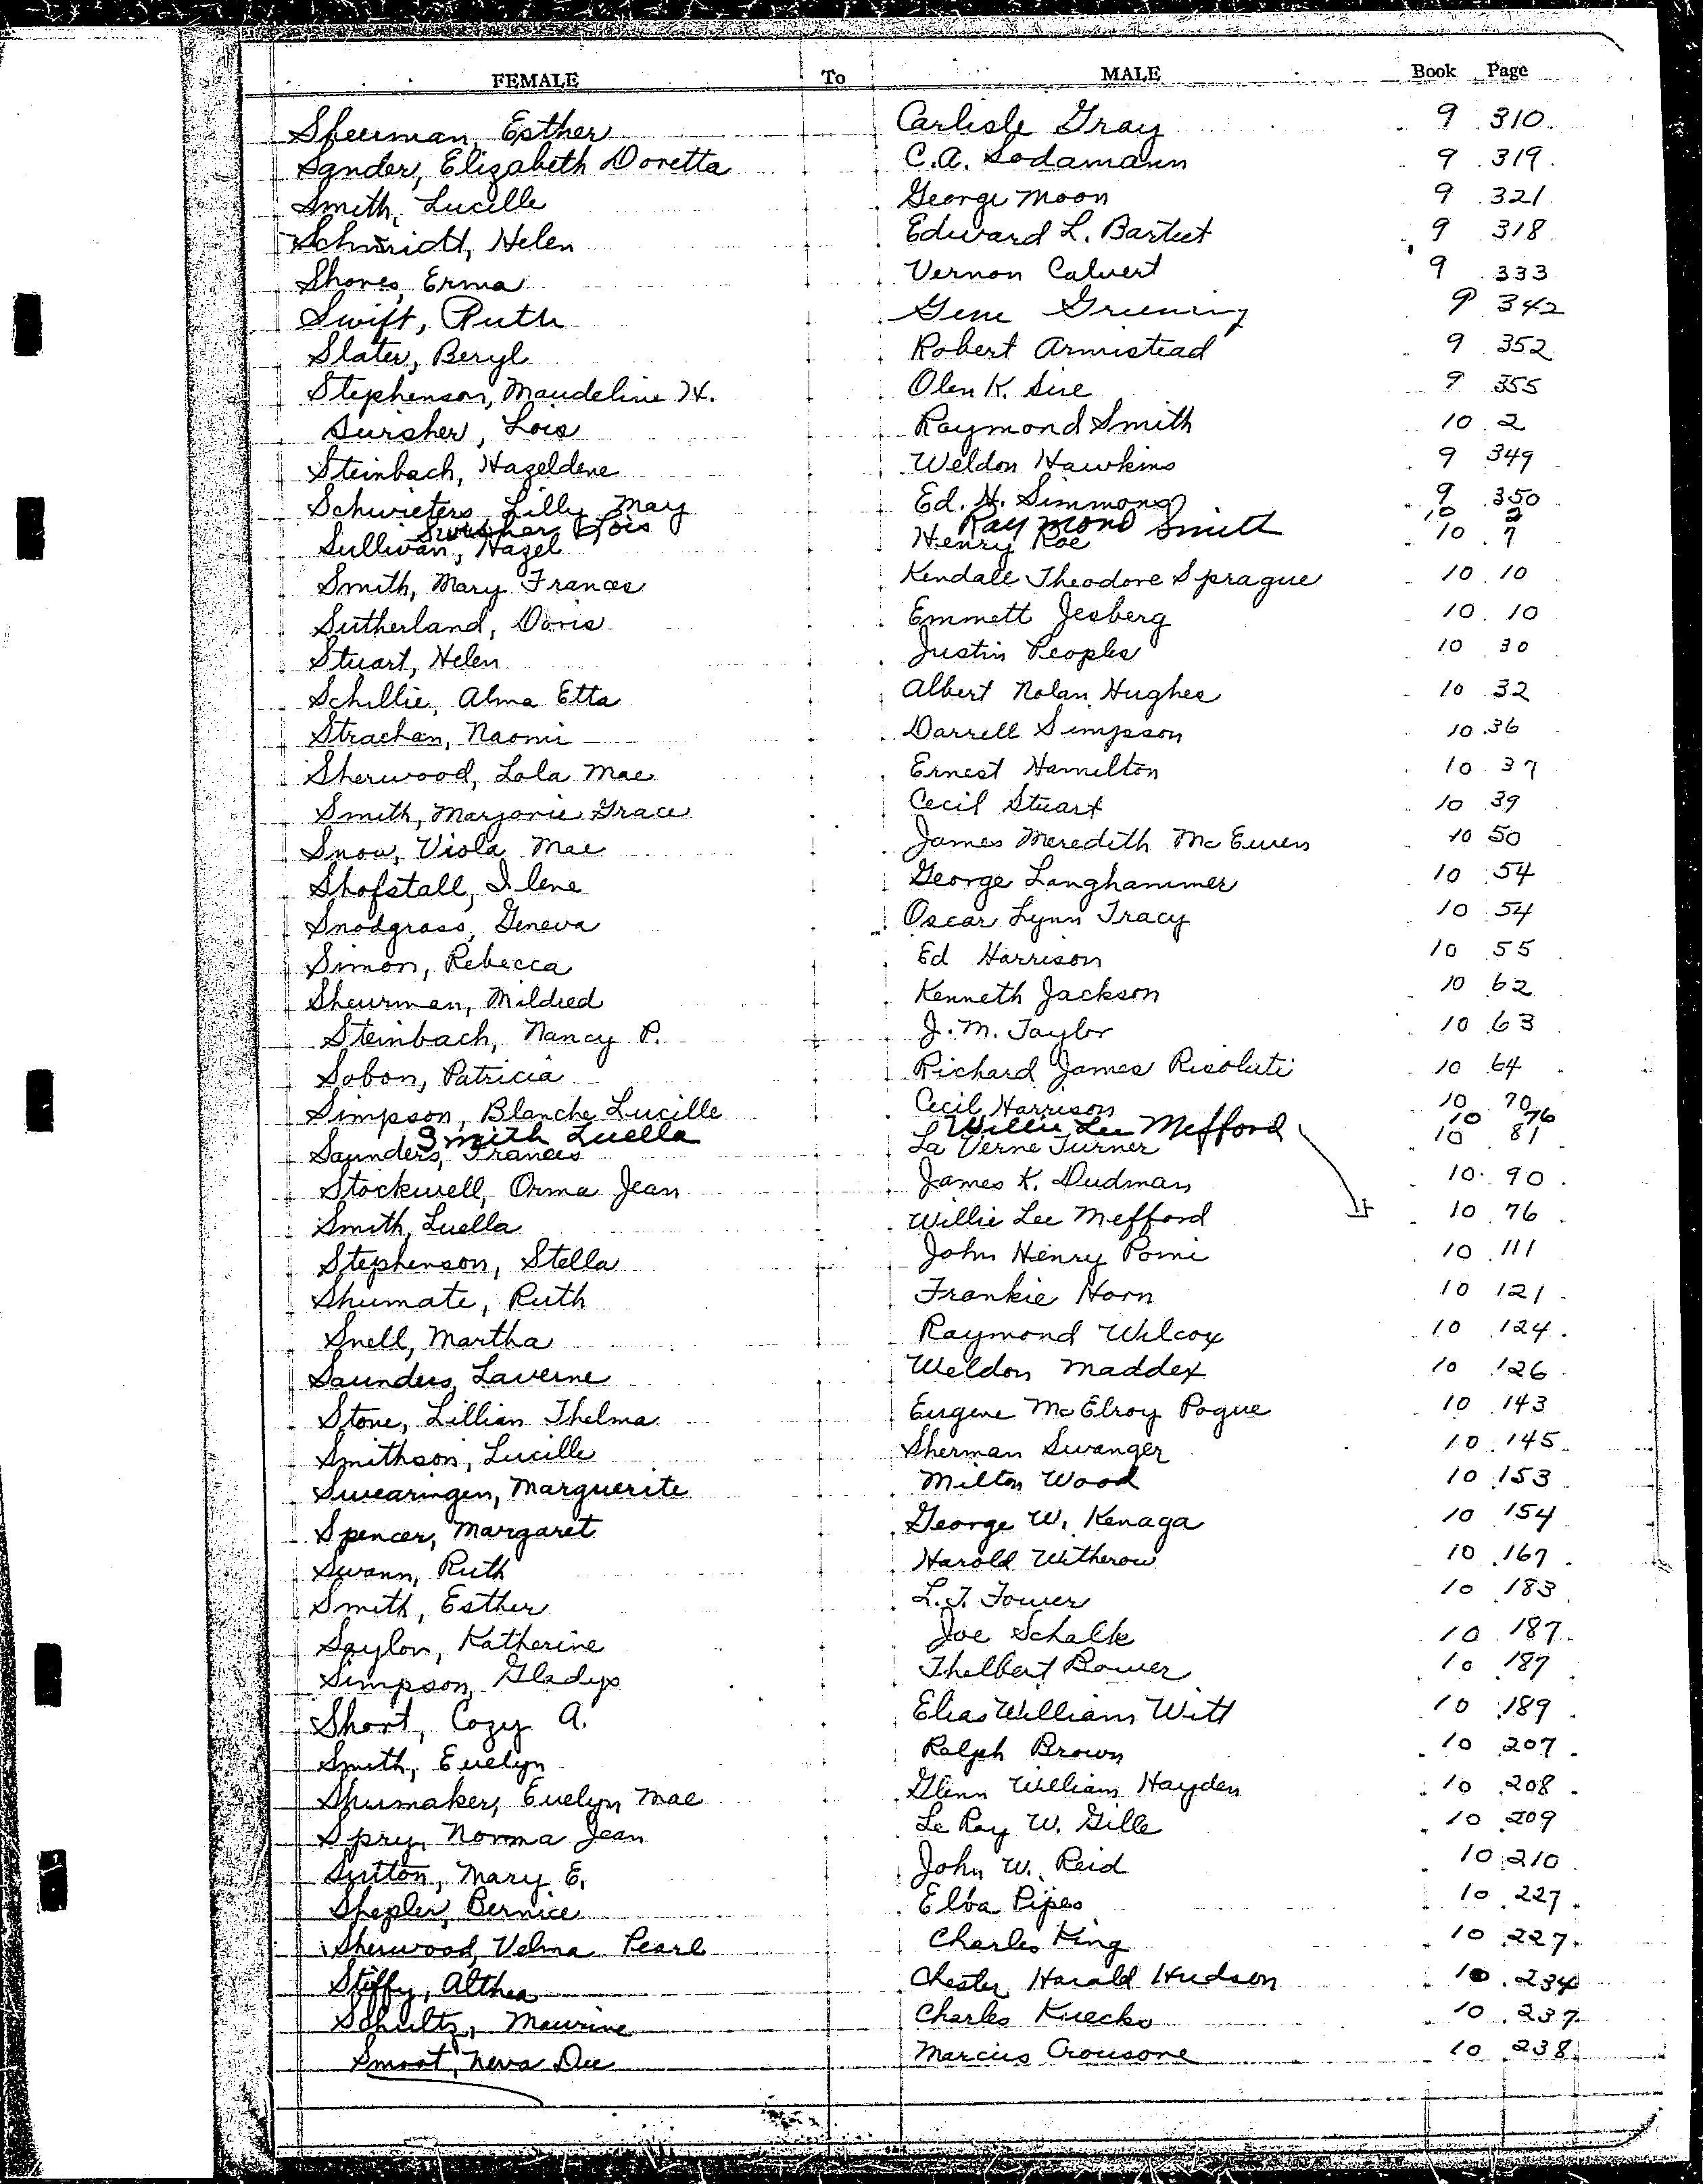 FEMALE To MALE Book Page
Sheurman, Esther Carlisle Gray 9 310
Sander, Elizabeth Doretta C.A. Sodamann 9 319
Smith, Lucille George Moon 9 321
Schmidt, Helen Edward L. Barteet 9 318
Shores, Erma Vernon Calvert 9 333
Swift, Ruth Gene Greening 9 342
Slater, Beryl Robert Armistead 9 352
Stephenson, Maudeline H. Olen K. Sire 9 355
Swisher, Lois Raymond Smith 10 2
Steinbach, Hazeldene Weldon Hawkins 9 349
Schwieters, Lilly May Ed. H. Simmons 9 350
Swisher Lois Raymond Smith 10 2
Sullivan, Hazel Henry Roe 10 7
Smith, Mary Frances Kendall Theodore Sprague 10 10
Sutherland, Doris Emmett Jesberg 10 10
Stuart, Helen Justin Peoples 10 30
Schillie, Alma Etta Albert Nolan Hughes 10 32
Strachan, Naomi Darrell Simpson 10 36
Sherwood, Lola Mae Ernest Hamilton 10 37
Smith, Marjorie Grace Cecil Stuart 10 39
Snow, Viola Mae James Meredith McEwen 10 50
Shofstall, Ilene George Langhammer 10 54
Snodgrass, Geneva Oscar Lynn Tracy 10 54
Simon, Rebecca Ed Harrison 10 55
Sheurman, Mildred Kenneth Jackson 10 62
Steinbach, Nancy P. J.M. Taylor 10 63
Sobon, Patricia Richard James Risoluti 10 64
Simpson, Blanche Lucille Cecil Harrison 10 70
Smith Luella Willie Lee Mefford 10 76
Saunders, Frances La Verne Turner 10 81
Stockwell, Orma Jean James K. Dudman 10 90
Smith, Luella Willie Lee Mefford 10 76
Stephenson, Stella John Henry Pomi 10 111
Shumate, Ruth Frankie Horn 10 121
Snell, Martha Raymond Wilcox 10 124
Saunders, Laverne Weldon Maddex 10 126
Stone, Lillian Thelma Eugene McElroy Pogue 10 143
Smithson, Lucille Sherman Swanger 10 145
Swearingen, Marguerite Milton Wood 10 153
Spencer, Margaret George W. Kenaga 10 154
Swann, Ruth Harold Witherow 10 167
Smith, Esther L.T. Fower 10 183
Saylor, Katherine Joe Schalk 10 187
Simpson, Gladys Thelbert Bower 10 187
Short, Cozy A. Elias William Witt 10 189
Smith, Evelyn Ralph Brown 10 207
Shumaker, Evelyn Mae Glenn William Hayden 10 208
Spry, Norma Jean Le Roy W. Gille 10 209
Sutton, Mary E. John W. Reid 10 210
Shepler, Bernice Elba Pipes 10 227
Sherwood, Velma Pearl Charles King 10 227
Stiffy, Althea Chester Harald Hudson 10 234
Schultz, Maurine Charles Kuecks 10 237
Smoot, Neva Dee Marcus Crousore 10 238